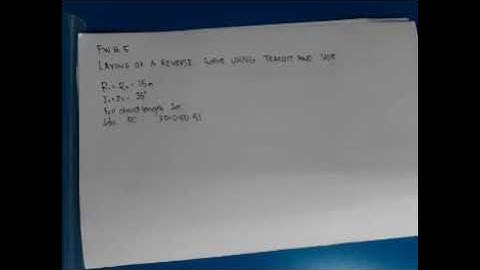 FW # 5
LAYING OF A REVERSE CURVE USING TRANSIT AND TAPE
R₁ = R₂ = 35m
I₁ = I₂ = 35°
full chord length 3m
Sta. PC